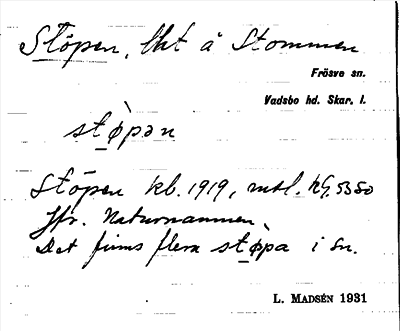 Stöpen, lht å Stommen
Frösve sn.
Vadsbo hd. Skar. l.
stø̀pən
Stöpen kb. 1919, mtl.
Jfr. Naturnamnen.
Det finns flera støpa i sn.
L. MADSÉN 1931